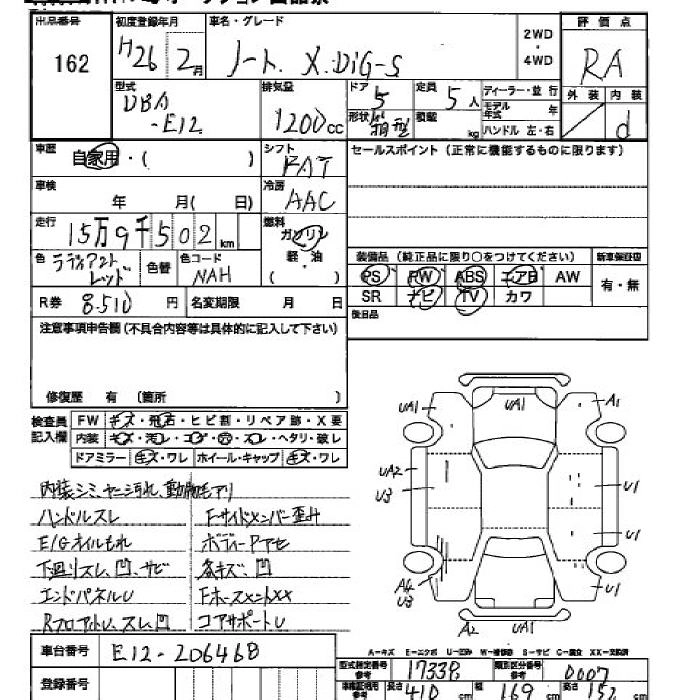 出品番号
162
初度登録年月
H26年 2月
車名・グレード
ノート X.DiG-S
2WD
・
4WD
評価点
RA
型式
DBA
-E12
排気量
1200cc
ドア
5
定員
5人
ディーラー・並行
モデル年式 年
ハンドル 左・右
外装
内装
d
形状
箱型
積載 kg
車歴
自家用・( )
シフト
FAT
セールスポイント(正常に機能するものに限ります)
車検
年 月( 日)
冷房
AAC
走行
15万9千502km
燃料
ガソリン
軽・油
( )
色
ラディアント
レッド
色替
色コード
NAH
装備品(純正品に限り○をつけてください)
新車保証書
PS PW ABS エアB AW
SR ナビ TV カワ
有・無
R券 8510円
名変期限 月 日
後日品
注意事項申告欄(不具合内容等は具体的に記入して下さい)
修復歴 有 〔箇所 〕
検査員
記入欄
FW キズ・飛石・ヒビ割・リペア跡・X要
内装 キズ・汚レ・コゲ・穴・スレ・ヘタリ・破レ
ドアミラー キズ・ワレ ホイール・キャップ キズ・ワレ
内装シミ、ヤニ汚れ、動物毛アリ
ハンドルスレ
Fサイドメンバー歪ミ
E/Gオイルもれ
ボディーPアセ
下廻リスレ、凹、サビ
各キズ、凹
エンドパネルU
FホースメントXX
RフロアトレU、スレ、凹
コアサポートU
UA1
UA1
A1
UA2
U3
U1
U1
A4
U3
U1
A2
UA1
A-キズ E-エクボ U-凹み W-補修跡 S-サビ C-腐食 XX-交換済
車台番号
E12-206468
登録番号
型式指定番号
17338
類別区分番号
0007
長さ 410 cm
幅 169 cm
高さ 152 cm